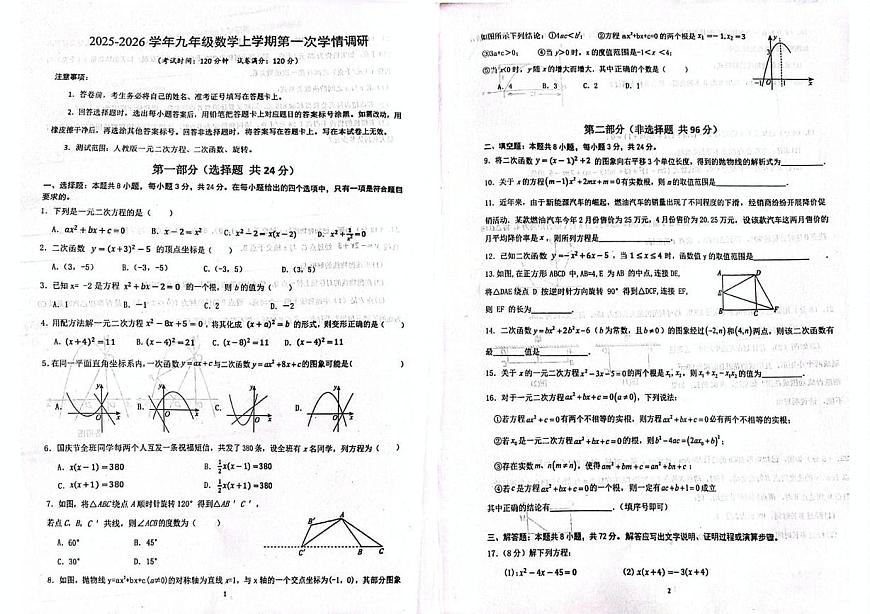 2025-2026 学年九年级数学上学期第一次学情调研
(考试时间：120 分钟　试卷满分：120 分)
注意事项：
1. 答卷前，考生务必将自己的姓名、准考证号填写在答题卡上。
2. 回答选择题时，选出每小题答案后，用铅笔把答题卡上对应题目的答案标号涂黑。如需改动，用
橡皮擦干净后，再选涂其他答案标号。回答非选择题时，将答案写在答题卡上。写在本试卷上无效。
3. 测试范围：人教版一元二次方程、二次函数、旋转。
第一部分（选择题 共 24 分）
一、选择题：本题共 8 小题，每小题 3 分，共 24 分。在每小题给出的四个选项中，只有一项是符合题目
要求的。
1. 下列是一元二次方程的是（　　）
A. ax²+bx+c=0　B. x−2=x²　C. x²−2=x(x−2)　D. x²+1/x=0
2. 二次函数 y=(x+3)²−5 的顶点坐标是（　　）
A. (3, -5)　B. (-3, -5)　C. (-3, 5)　D. (3, 5)
3. 已知 x= -2 是方程 x²+bx−2=0 的一个根，则 b 的值为（　　）
A. 1　B. −1　C. 2　D. −2
4. 用配方法解一元二次方程 x²−8x+5=0，将其化成 (x+a)²=b 的形式，则变形正确的是（　　）
A. (x+4)²=11　B. (x−4)²=21　C. (x−8)²=11　D. (x−4)²=11
5. 在同一平面直角坐标系内，一次函数 y=ax+c 与二次函数 y=ax²+8x+c 的图象可能是（　　）
A.　B.　C.　D.
6. 国庆节全班同学每两个人互发一条祝福短信，共发了 380 条，设全班有 x 名同学，列方程为（　　）
A. x(x−1)=380　B. ½x(x−1)=380
C. x(x+1)=380　D. ½x(x+1)=380
7. 如图，将△ABC 绕点 A 顺时针旋转 120° 得到△AB′C′，
若点 C、B、C′共线，则∠ACB 的度数为（　　）
A. 60°　B. 45°
C. 30°　D. 15°
B′ A C′ B C
8. 如图，抛物线 y=ax²+bx+c (a≠0)的对称轴为直线 x=1，与 x 轴的一个交点坐标为(-1, 0)，其部分图象
1
如图所示下列结论：①4ac<b²；　②方程 ax²+bx+c=0 的两个根是 x₁=−1, x₂=3
③3a+c>0；　④当 y>0 时，x 的取值范围是-1<x<4；
⑤当 x<0 时，y 随 x 的增大而增大．其中正确的个数是（　　）
A. 4　B. 3　C. 2　D. 1
y 3 -1 O 1 x
第二部分（非选择题 共 96 分）
二、填空题：本题共 8 小题，每小题 3 分，共 24 分。
9. 将二次函数 y=(x−1)²+2 的图象向右平移 3 个单位长度，得到的抛物线的解析式为________．
10. 关于 x 的方程(m−1)x²+2mx+m=0 有实数根，则 m 的取值范围是________．
11. 近年来，由于新能源汽车的崛起，燃油汽车的销量出现了不同程度的下滑，经销商纷纷开展降价促
销活动．某款燃油汽车今年 2 月份售价为 25 万元，4 月份售价为 20.25 万元，设该款汽车这两月售价的
月平均降价率是 x，则所列方程是________．
12. 已知二次函数 y=−x²+6x−5，当 1≤x≤4 时，函数值 y 的取值范围是________
13. 如图，在正方形 ABCD 中，AB=4, E 为 AB 的中点，连接 DE，
将△DAE 绕点 D 按逆时针方向旋转 90° 得到△DCF，连接 EF，
则 EF 的长为________．
A D E B C F
14. 二次函数 y=bx²+2b²x−6（b 为常数，且 b≠0）的图象经过(−2,n)和(4,n)两点，则该二次函数有
最____值是________．
15. 关于 x 的一元二次方程 x²−3x−5=0 的两个根是 x₁, x₂，则 x₁+x₂−x₁x₂ 的值为________．
16. 对于一元二次方程 ax²+bx+c=0(a≠0)，下列说法：
①若方程 ax²+c=0 有两个不相等的实根，则方程 ax²+bx+c=0 必有两个不相等的实根；
②若 x₀ 是一元二次方程 ax²+bx+c=0 的根，则 b²−4ac=(2ax₀+b)²；
③存在实数 m、n(m≠n)，使得 am²+bm+c=an²+bn+c；
④若 c 是方程 ax²+bx+c=0 的一个根，则一定有 ac+b+1=0 成立
其中正确的结论有________．（填序号即可）
三、解答题：本题共 8 小题，共 72 分。解答应写出文字说明、证明过程或演算步骤。
17.（8 分）解下列方程：
(1)；x²−4x−45=0　(2) x(x+4)=−3(x+4)
2